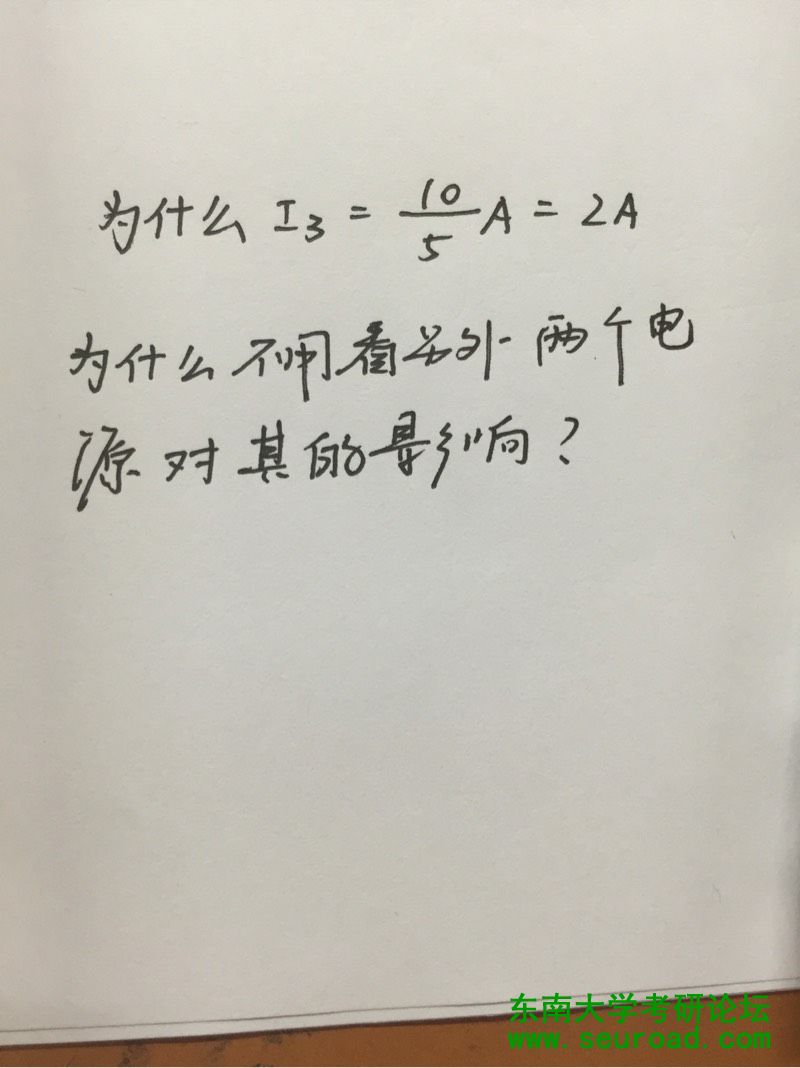 为什么 I₃ = 10/5 A = 2A
为什么不用看另外两个电
源对其的影响?
东南大学考研论坛
www.seuroad.com